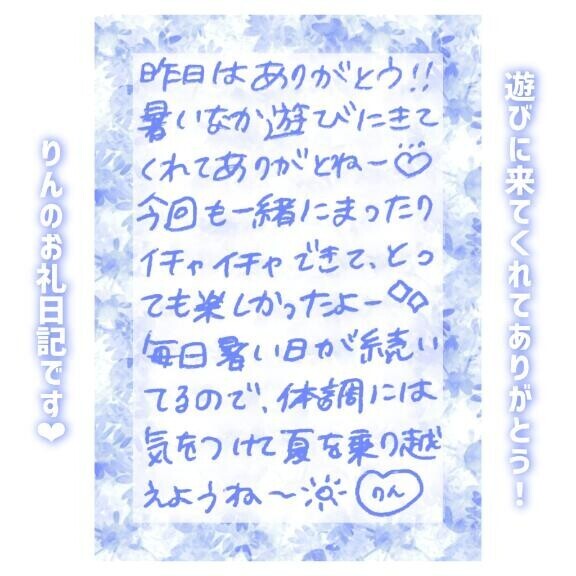 遊びに来てくれてありがとう!
昨日はありがとう!!
暑いなか遊びにきて
くれてありがとねー♡
今回も一緒にまったり
イチャイチャできて、とっ
ても楽しかったよー
毎日暑い日が続い
てるので、体調には
気をつけて夏を乗り越
えようね〜
りん
りんのお礼日記です❤